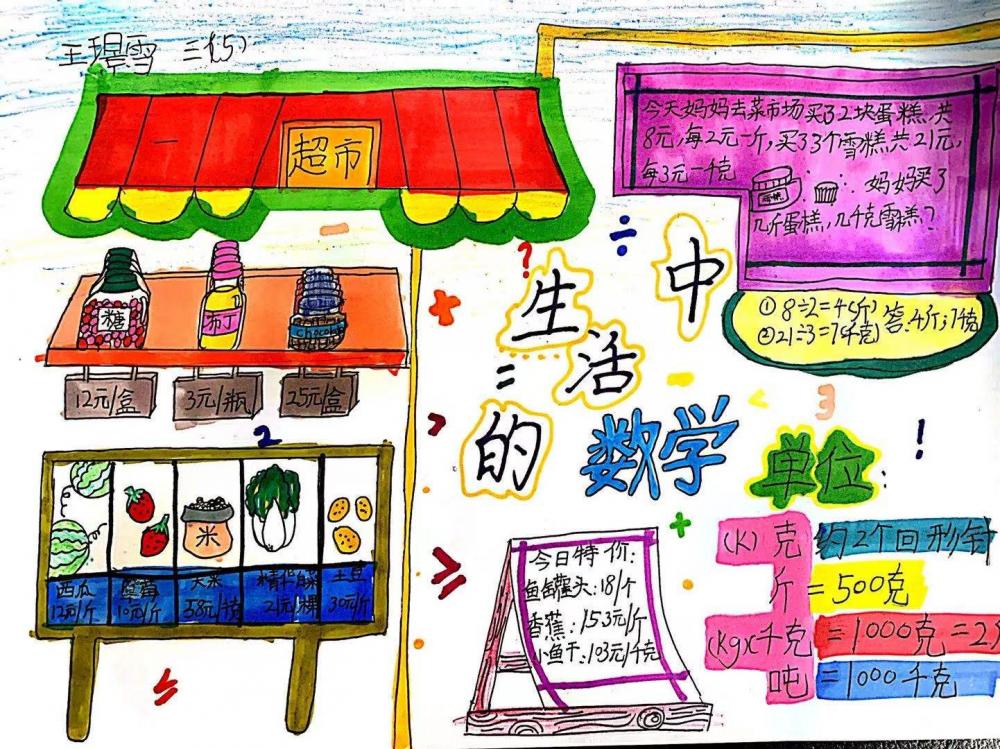 王璟雪 三(5)
超市
糖
布丁
Chocolate
12元/盒
3元/瓶
25元/盒
2
米
西瓜
12元/斤
草莓
10元/斤
大米
58元/千克
精作白菜
21元/棵
土豆
30元/斤
今天妈妈去菜市场买了2块蛋糕,共
8元,每2元一斤,买了3个雪糕共21元,
每3元一千克
妈妈买了
几斤蛋糕,几千克雪糕?
①8÷2=4(斤)
②21÷3=7(千克)
答:4斤,7千克
÷
?
生活
中
=
的
数学
3
!
单位:
(K)克 约2个回形针
斤=500克
(kg)千克=1000克=2斤
吨=1000千克
今日特价:
鱼罐头:18/个
香蕉:153元/斤
小鱼干:103元/千克